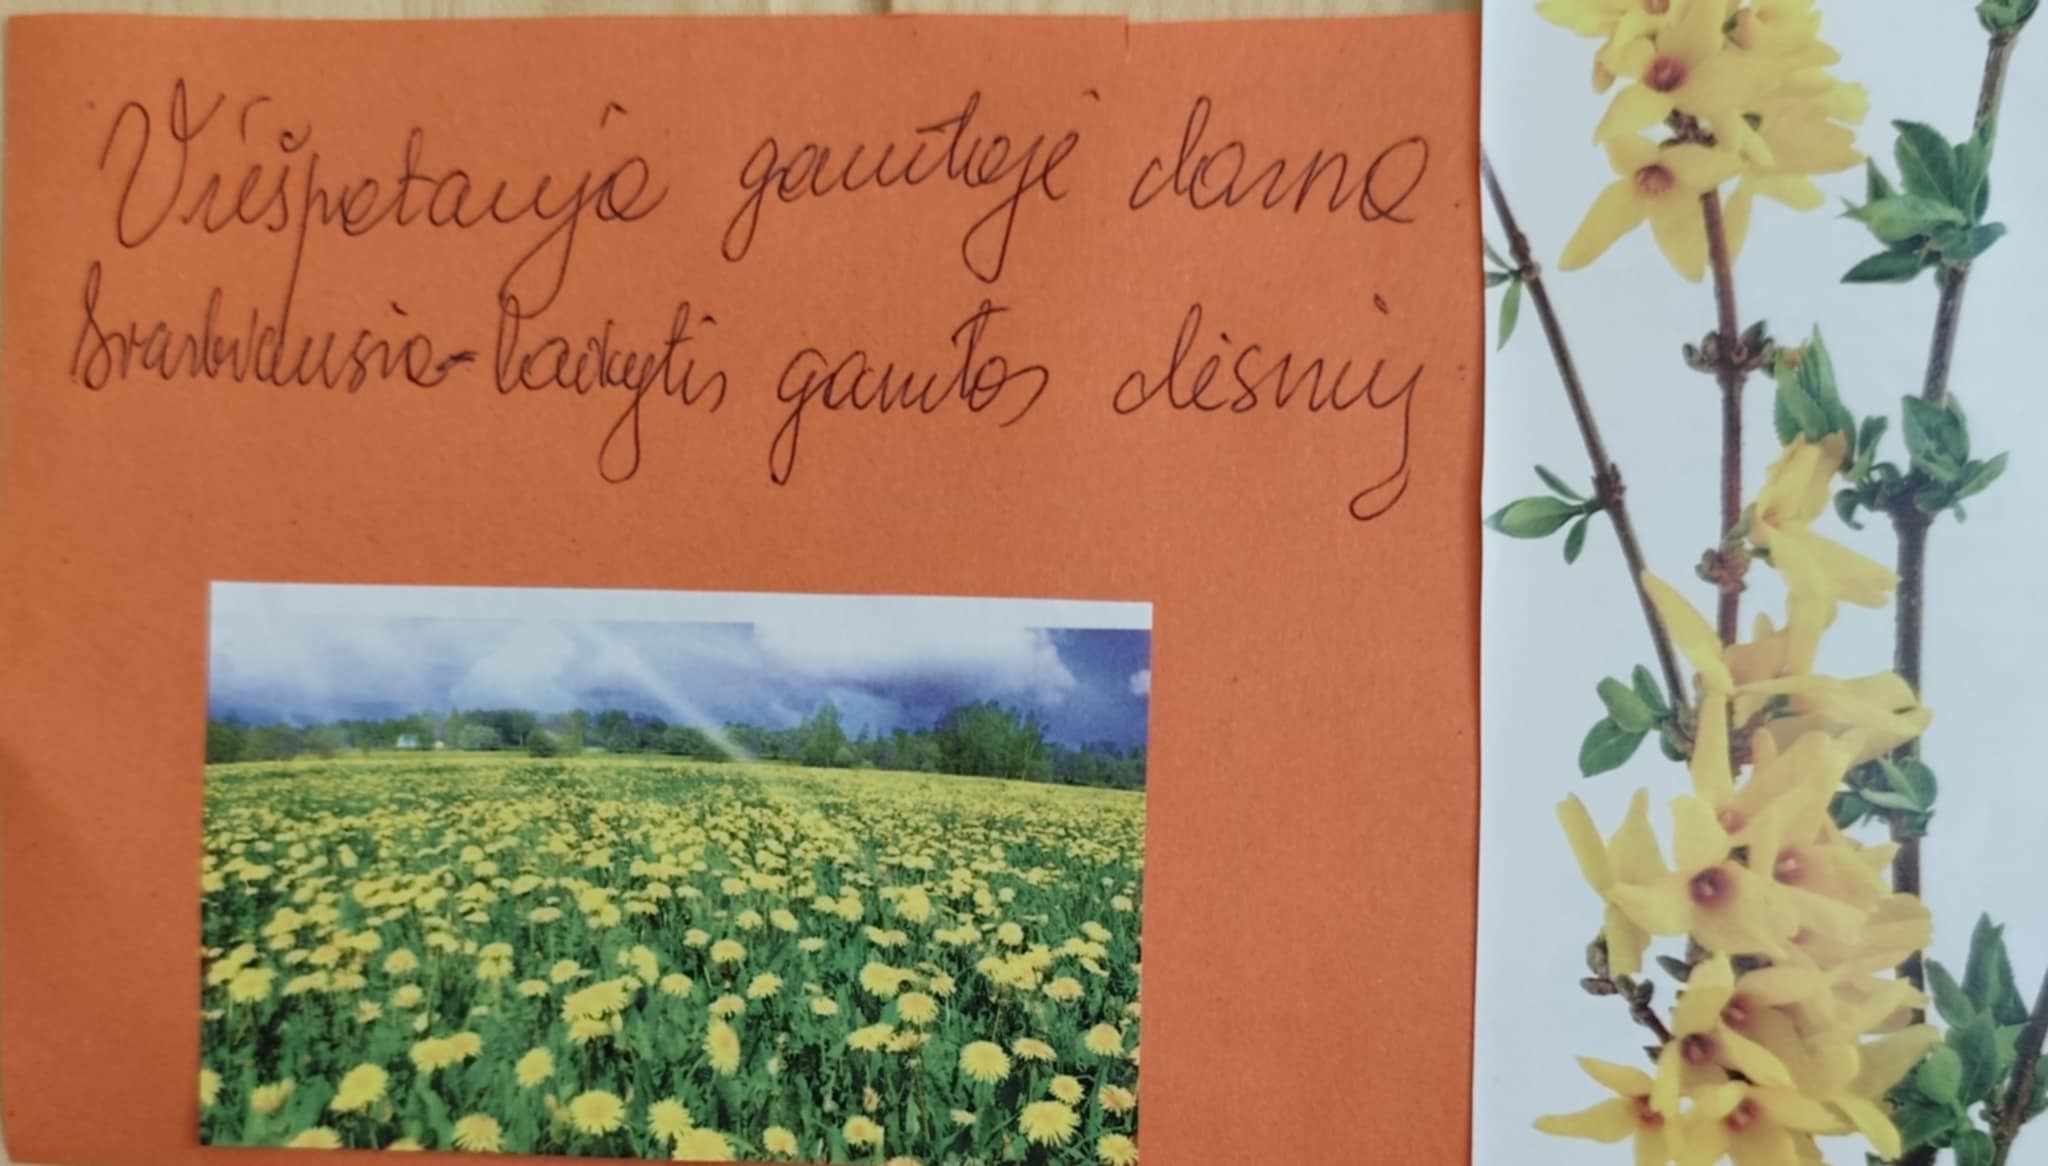 Viešpatauja gamtoje darna
Svarbiausia-laikytis gamtos dėsnių